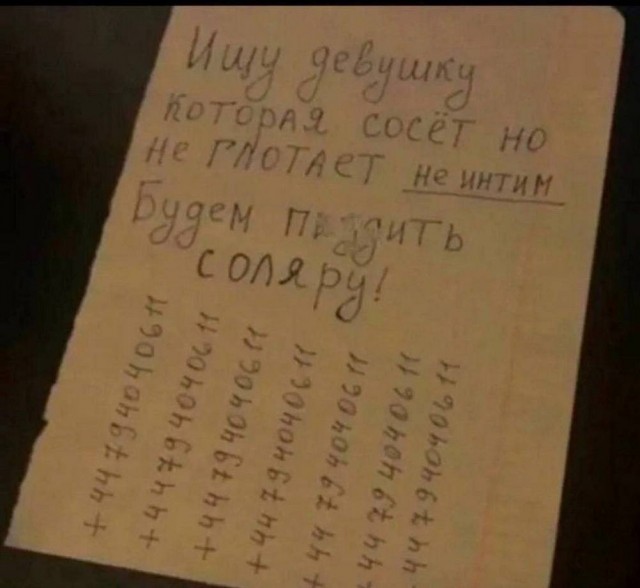 Ищу девушку
которая сосёт но
не глотает не интим
Будем
соляру!
+44794040611
+44794040611
+44794040611
+44794040611
+44794040611
+44794040611
+44794040611